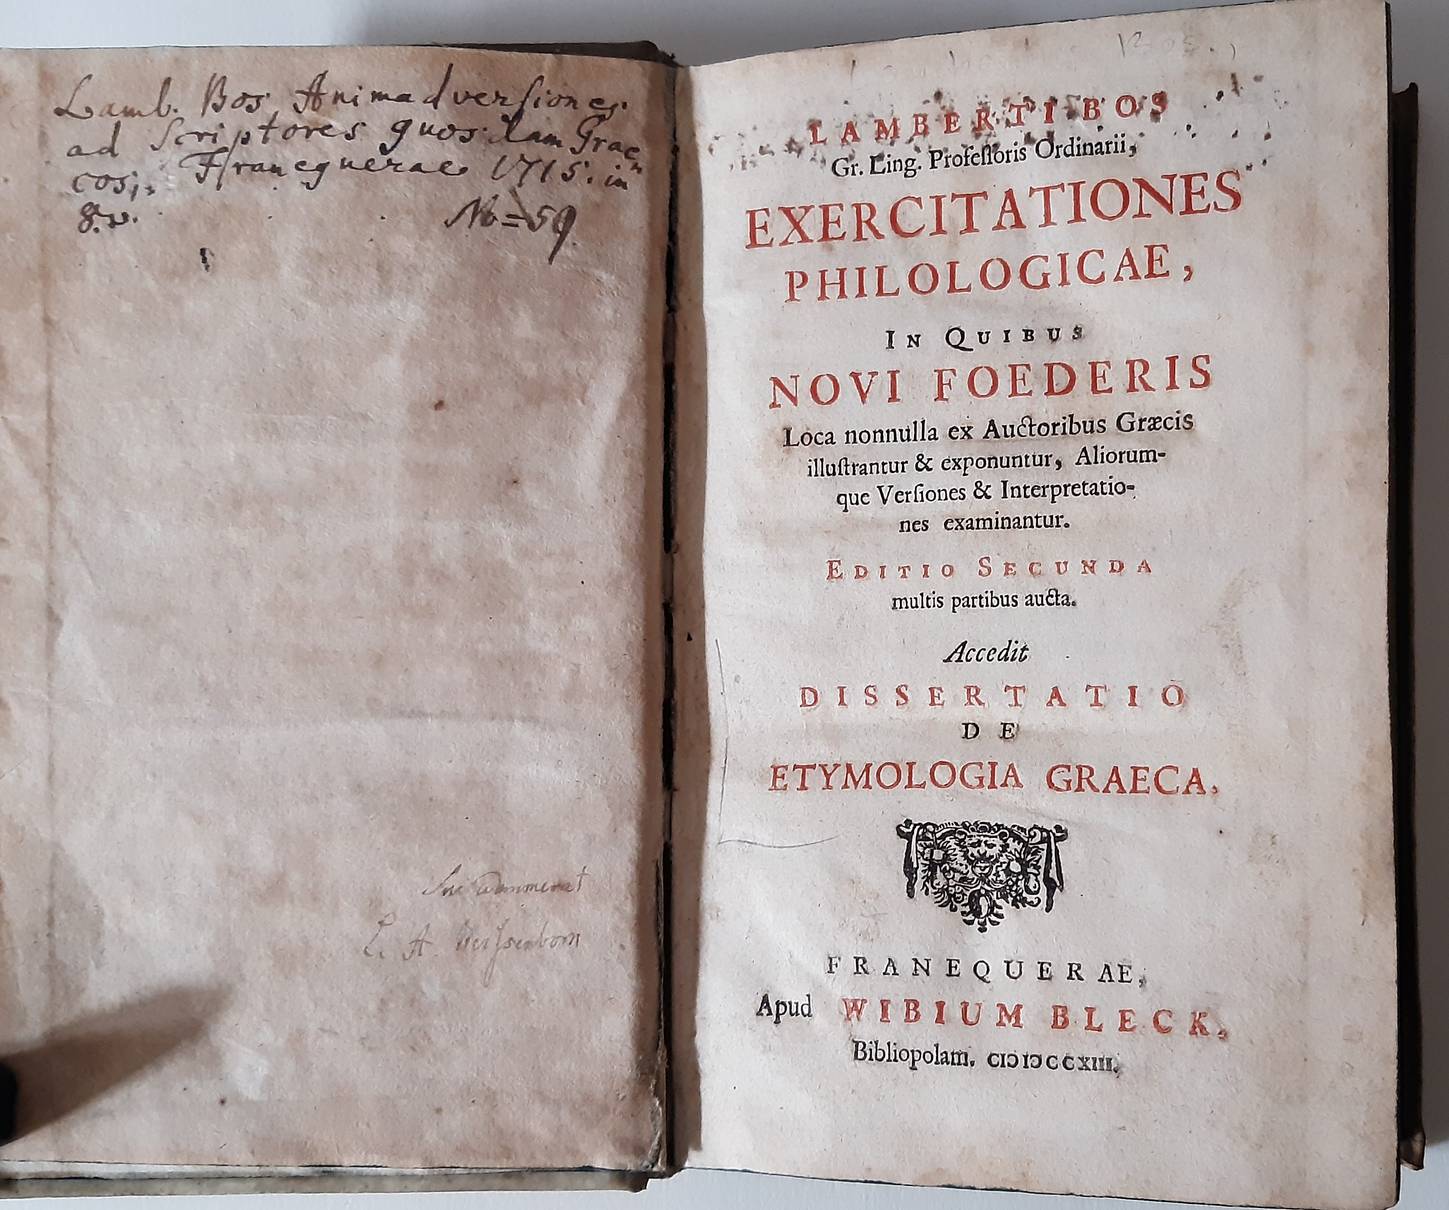 Lamb. Bos Animadversiones
ad Scriptores quosdam Grae-
cos; Franequerae 1715. in
8.vo. No=59
L. A.
LAMBERTI BOS
Gr. Ling. Profeſſoris Ordinarii,
EXERCITATIONES
PHILOLOGICAE,
IN QUIBUS
NOVI FOEDERIS
Loca nonnulla ex Auctoribus Græcis
illuſtrantur & exponuntur, Aliorum-
que Verſiones & Interpretatio-
nes examinantur.
EDITIO SECUNDA
multis partibus aucta.
Accedit
DISSERTATIO
DE
ETYMOLOGIA GRAECA.
FRANEQUERAE,
Apud WIBIUM BLECK,
Bibliopolam. CIↃ IↃ CC XIII.